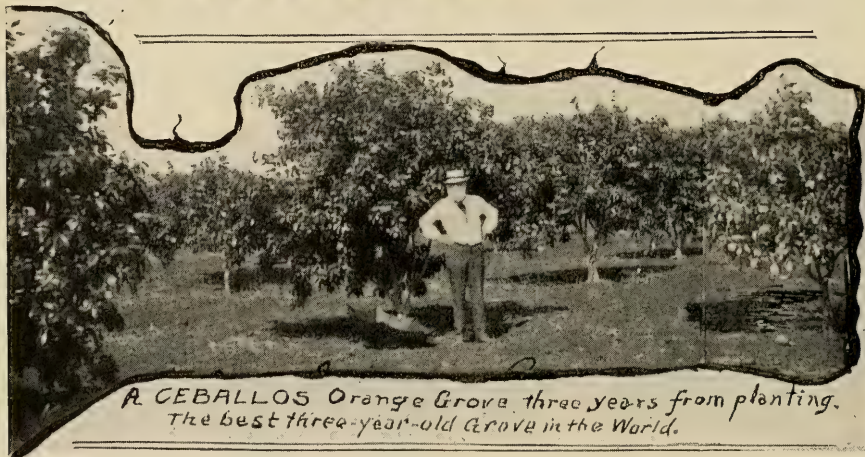 A CEBALLOS Orange Grove three years from planting.
The best three-year-old Grove in the World.